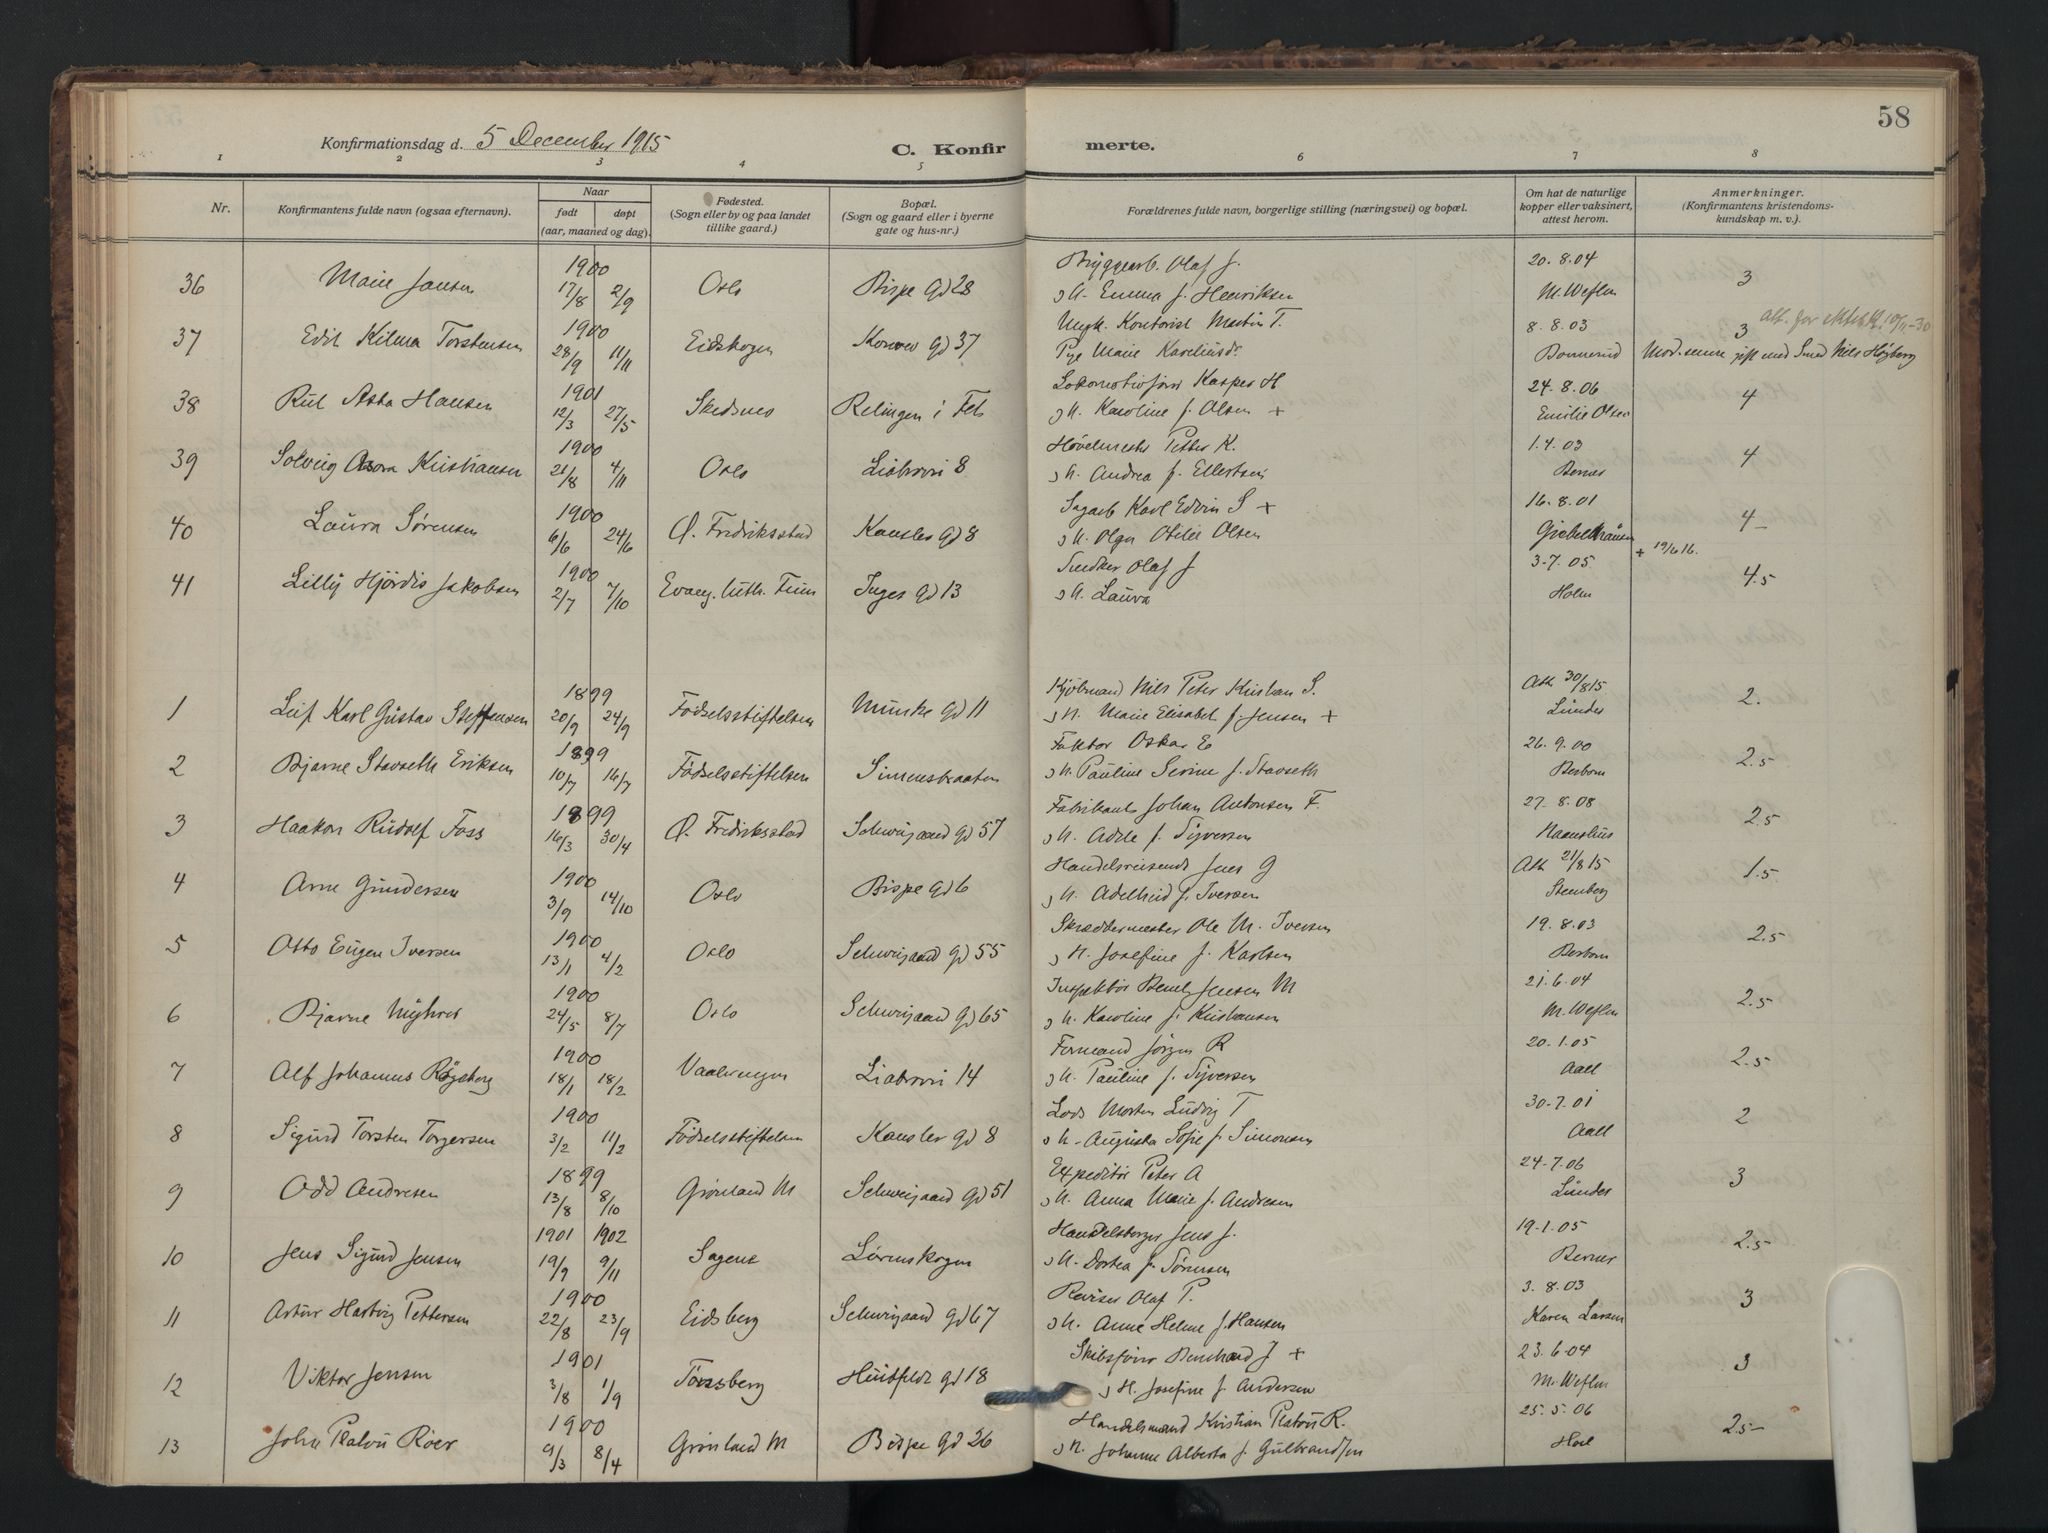 58
Konfirmationsdag d. 5 December 1915
C. Konfir merte.
1 2 3 4 5 6 7 8
Nr. Konfirmantens fulde navn (ogsaa efternavn). Naar født døpt (aar, maaned og dag). Fødested. (Sogn eller by og paa landet tillike gaard.) Bopæl. (Sogn og gaard eller i byerne gate og hus-nr.) Forældrenes fulde navn, borgerlige stilling (næringsvei) og bopæl. Om hat de naturlige kopper eller vaksinert, attest herom. Anmerkninger. (Konfirmantens kristendoms-kundskap m. v.)
1900 Bryggearb. Olaf J. 20.8.04
36 Marie Jansen 17/8 2/9 Oslo Bispe gd 28 o H. Emma f. Henriksen M. Weflen 3
1900 Ungk. Kontorist Martin T. 8.8.03 3 10/11-30
37 Edit Kilma Torstensen 28/9 11/11 Eidskogen gd 37 Pige Marie Bonnerud Mod. senere gift med Smed Nils Høyberg
1901 Kasper H 24.8.06
38 Rut Asta Hansen 12/3 27/5 Skedsmo Relingen i Fet o H. Karoline f. Olsen + Emilie Olsen 4
1900 Høvelmester Petter K. 1.4.03
39 Solveig Kristiansen 21/8 4/11 Oslo Liabrovei 8 o H. Andrea f. Ellertsen Berner 4
1900 Sagarb Karl Edvin S + 16.8.01
40 Laura Sørensen 6/6 24/6 Ø. Fredriksstad Kansler gd 8 o H. Olga Otilie Olsen Giebelhausen 4
+ 19/6 16.
1900 Snedker Olaf J 3.7.05
41 Lilly Hjördis Jakobsen 2/7 7/10 Evang. luth. Inges gd 13 o H. Laura Holm 4.5
1899 Nils Peter Kristian S. Att 30/8 15
1 Leif Karl Gustav Steffensen 20/9 24/9 Födselsstiftelsen Munke gd 11 o H. Marie Elisabet f. Jensen + Lunder 2.
1899 Faktor Oskar E 26.9.00
2 Bjarne Stavseth Eriksen 10/7 16/7 Födselsstiftelsen Simenstraaten o H. Pauline Serine f. Stavseth 2.5
1899 Fabrikant Johan Antonsen F. 27.8.08
3 Haakon Rudolf Foss 16/3 30/4 Ø. Fredriksstad Schweigaard gd 57 o H. Adele f. Syversen 2.5
1900 Handelsreisende Jens G Att 21/8 15
4 Arne Gundersen 3/9 14/10 Oslo Bispe gd 6 o H. Adelheid f. Iversen Steenberg 1.5
1900 Skræddermester Ole M. Iversen 19.8.03
5 Otto Eugen Iversen 13/1 4/2 Oslo Schweigaard gd 55 o H. Josefine f. Karlsen 2.5
1900 Inspektör Bernt Jensen M 21.6.04
6 Bjarne Myhrer 24/5 8/7 Oslo Schweigaard gd 65 o H. Karoline f. Kristiansen M. Weflen 2.5
1900 Formand Jörgen R 20.1.05
7 Alf Johannes Røgeberg 18/1 18/2 Vaalerengen Liabrovei 14 o H. Pauline f. Syversen Aall 2.5
1900 Lods Morten Ludvig T 30.7.01
8 Sigurd Torsten Torgersen 3/2 11/2 Födselsstiftelsen Kansler gd 8 o H. Augusta Sofie f. Simonsen Aall 2
1899 Expeditör Peter A 24.7.06
9 Odd Andresen 13/8 8/10 Grönland M Schweigaard gd 51 o H. Anna Marie f. Andresen Lunder 3
1901 1902 Handelsborger Jens J. 19.1.05
10 Jens Sigurd Jensen 19/9 9/11 Sagene Lörenskogen o H. Dortea f. Sörensen Berner 2.5
1900 Reviser Olaf P. 3.8.03
11 Artur Hartvig Pettersen 22/8 23/9 Eidsberg Schweigaard gd 67 o H. Anne Helene f. Hansen Karen Larsen 3
1901 Skibsförer Bernhard J + 23.6.04
12 Viktor Jensen 3/8 1/9 Tönsberg Huitfeldt gd 18 o H. Josefine f. Andersen M. Weflen 3
1900 Handelsmand Kristian Platou R. 25.5.06
13 John Platou Röer 9/3 8/4 Grönland M Bispe gd 26 o H. Johanne Alberta f. Gulbrandsen Hoel 2.5